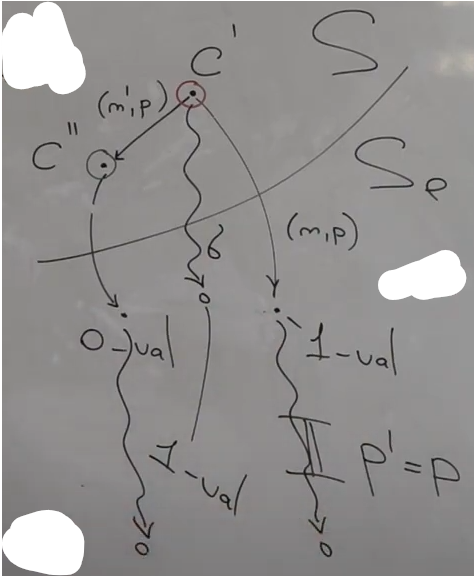 C'
S
(m',p)
C''
S_e
(m,p)
6
0-val
1-val
1-val
p'=p